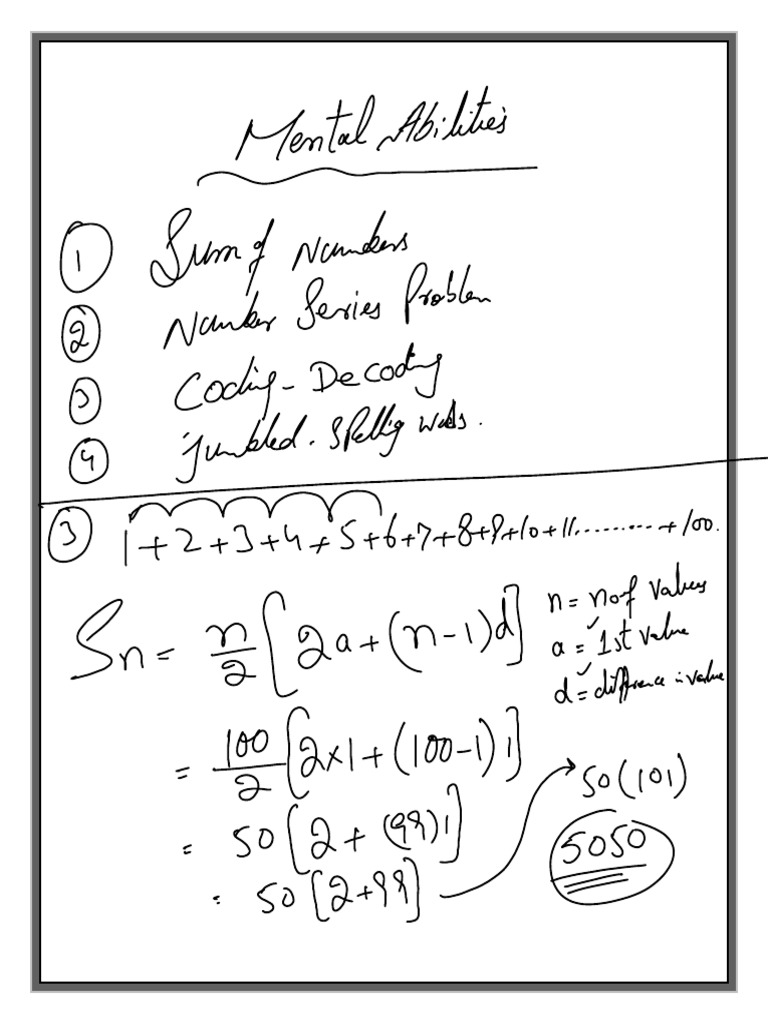 Mental Abilities
1 Sum of Numbers
2 Number Series Problem
3 Coding - Decoding
4 Jumbled. Spelling words.
3 1+2+3+4+5+6+7+8+9+10+11.........+100.
Sn = n/2 [2a+(n-1)d]
n = no of values
a = 1st value
d = difference in value
= 100/2 [2×1+(100-1)1]
= 50 [2+(99)1]
= 50 [2+99]
50(101)
5050